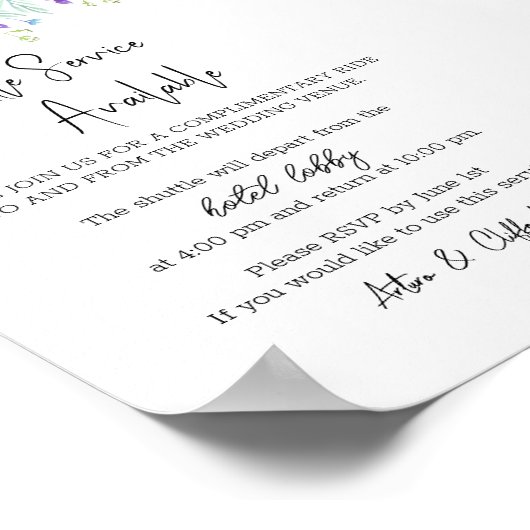 Service
Available
JOIN US FOR A COMPLIMENTARY RIDE
AND FROM THE WEDDING VENUE
The shuttle will depart from the
hotel lobby
at 4:00 pm and return at 10:00 pm
Please RSVP by June 1st
If you would like to use this
Arturo &